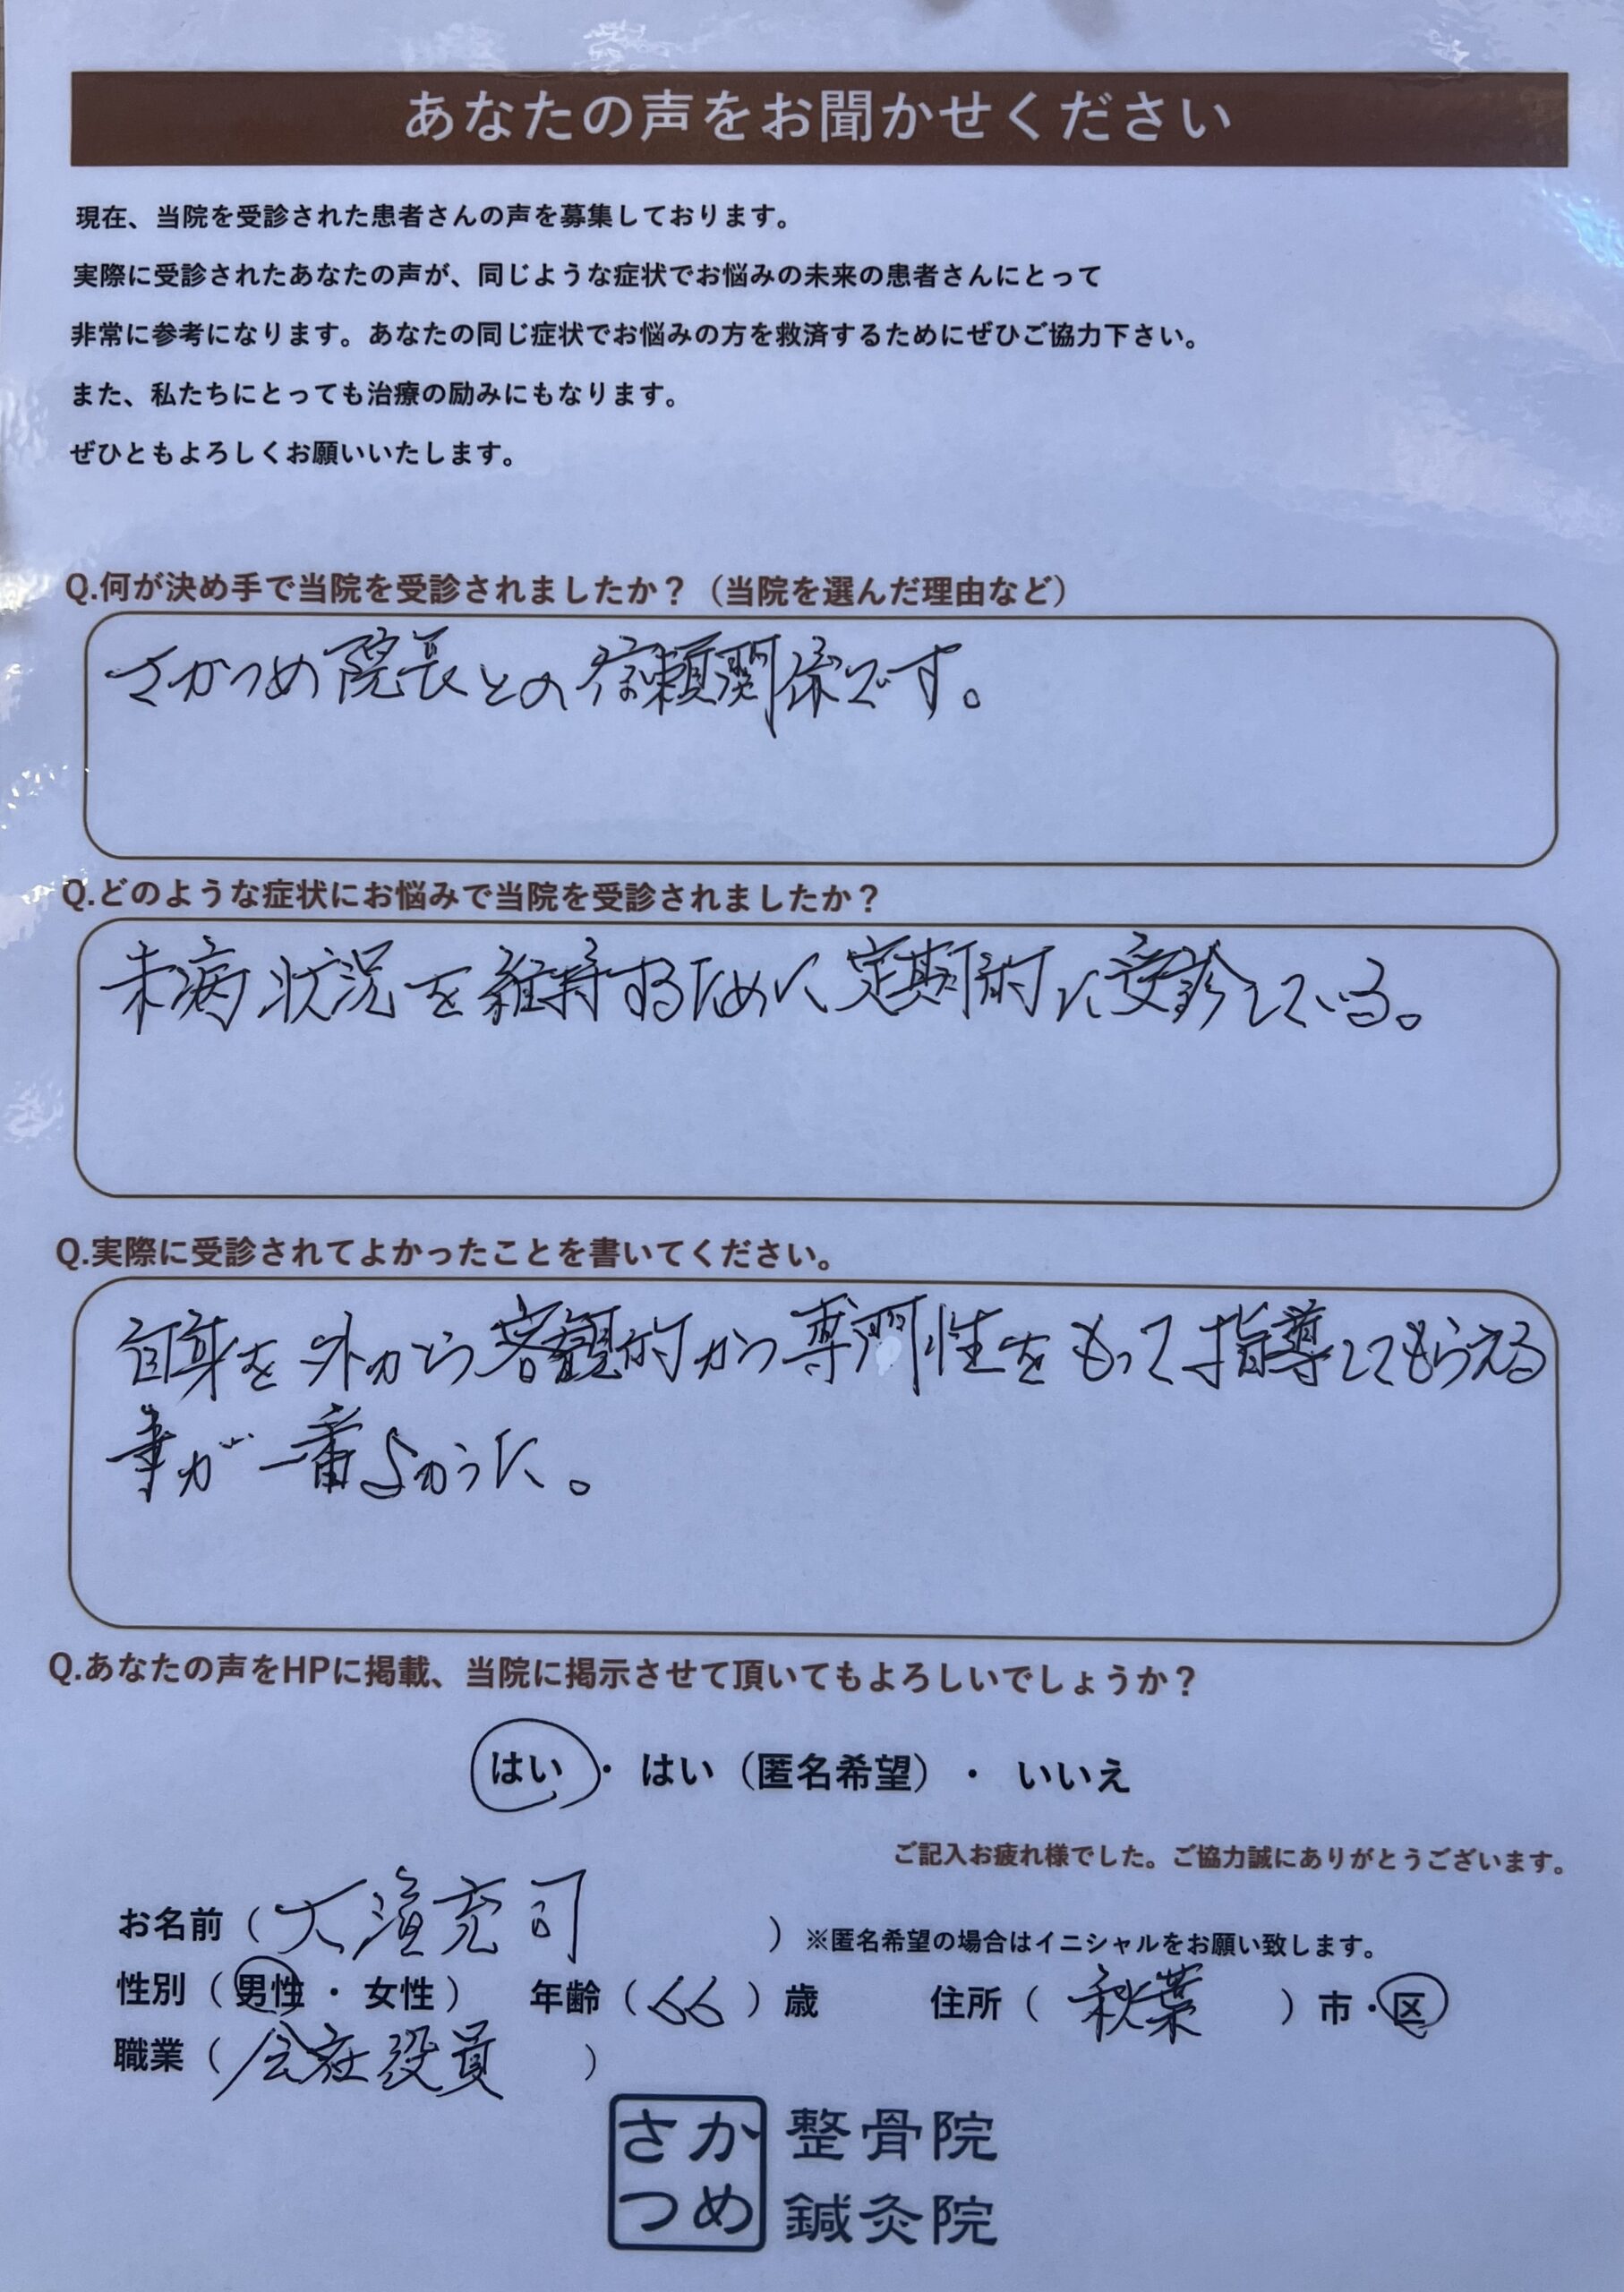 あなたの声をお聞かせください
現在、当院を受診された患者さんの声を募集しております。
実際に受診されたあなたの声が、同じような症状でお悩みの未来の患者さんにとって
非常に参考になります。あなたの同じ症状でお悩みの方を救済するためにぜひご協力下さい。
また、私たちにとっても治療の励みにもなります。
ぜひともよろしくお願いいたします。
Q.何が決め手で当院を受診されましたか？（当院を選んだ理由など）
さかつめ院長との信頼関係です。
Q.どのような症状にお悩みで当院を受診されましたか？
未病状況を維持するために定期的に受診している。
Q.実際に受診されてよかったことを書いてください。
自身を外から客観的かつ専門性をもって指導してもらえる
事が一番よかった。
Q.あなたの声をHPに掲載、当院に掲示させて頂いてもよろしいでしょうか？
はい ・ はい（匿名希望） ・ いいえ
ご記入お疲れ様でした。ご協力誠にありがとうございます。
お名前（大濱充司）※匿名希望の場合はイニシャルをお願い致します。
性別（男性・女性） 年齢（66）歳 住所（秋葉）市・区
職業（会社役員）
さかつめ 整骨院
鍼灸院